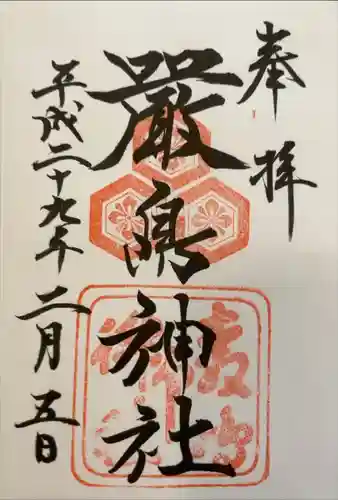 奉拝
厳島神社
平成二十九年二月五日